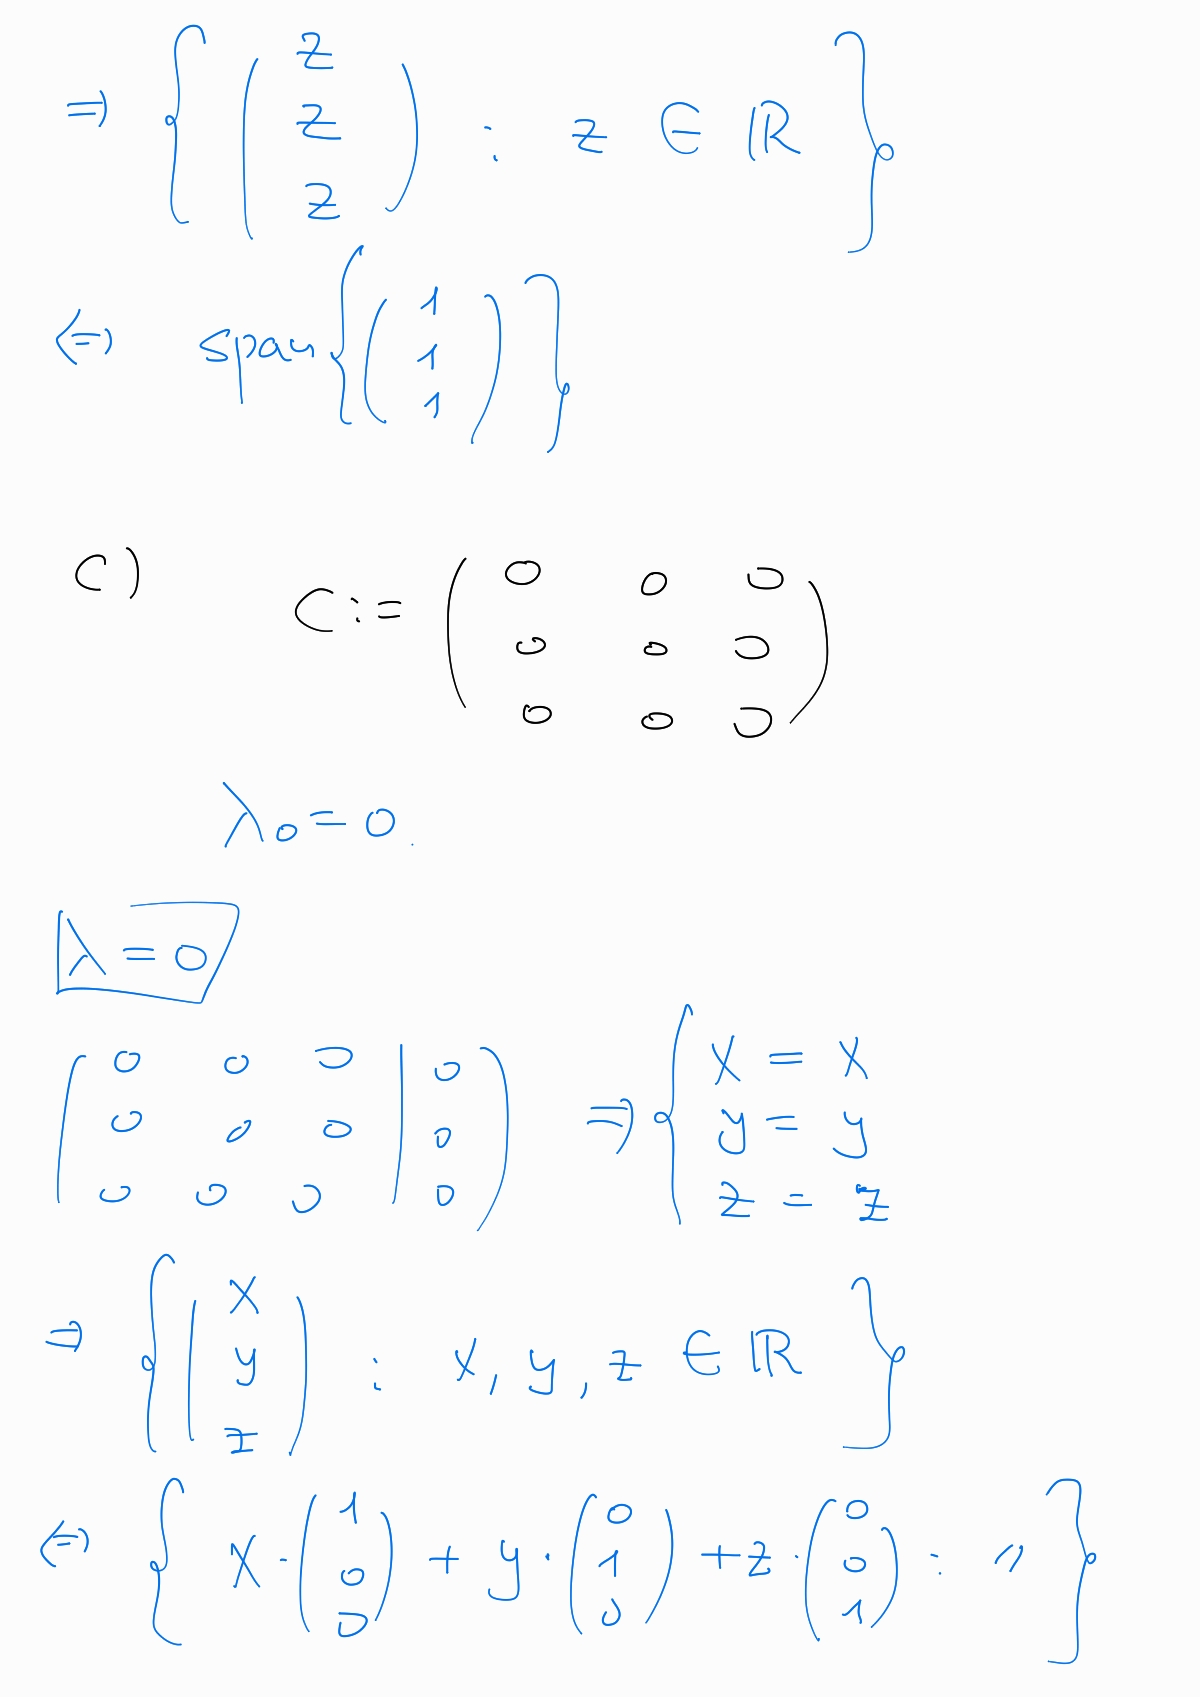 ⇒ { ( z z z ) : z ∈ ℝ }
⇔ span { ( 1 1 1 ) }
c) C := ( 0 0 0
0 0 0
0 0 0 )
λ₀ = 0.
λ = 0
( 0 0 0 | 0
0 0 0 | 0
0 0 0 | 0 ) ⇒ { x = x
y = y
z = z
⇒ { ( x y z ) : x, y, z ∈ ℝ }
⇔ { x · ( 1 0 0 ) + y · ( 0 1 0 ) + z · ( 0 0 1 ) : " }